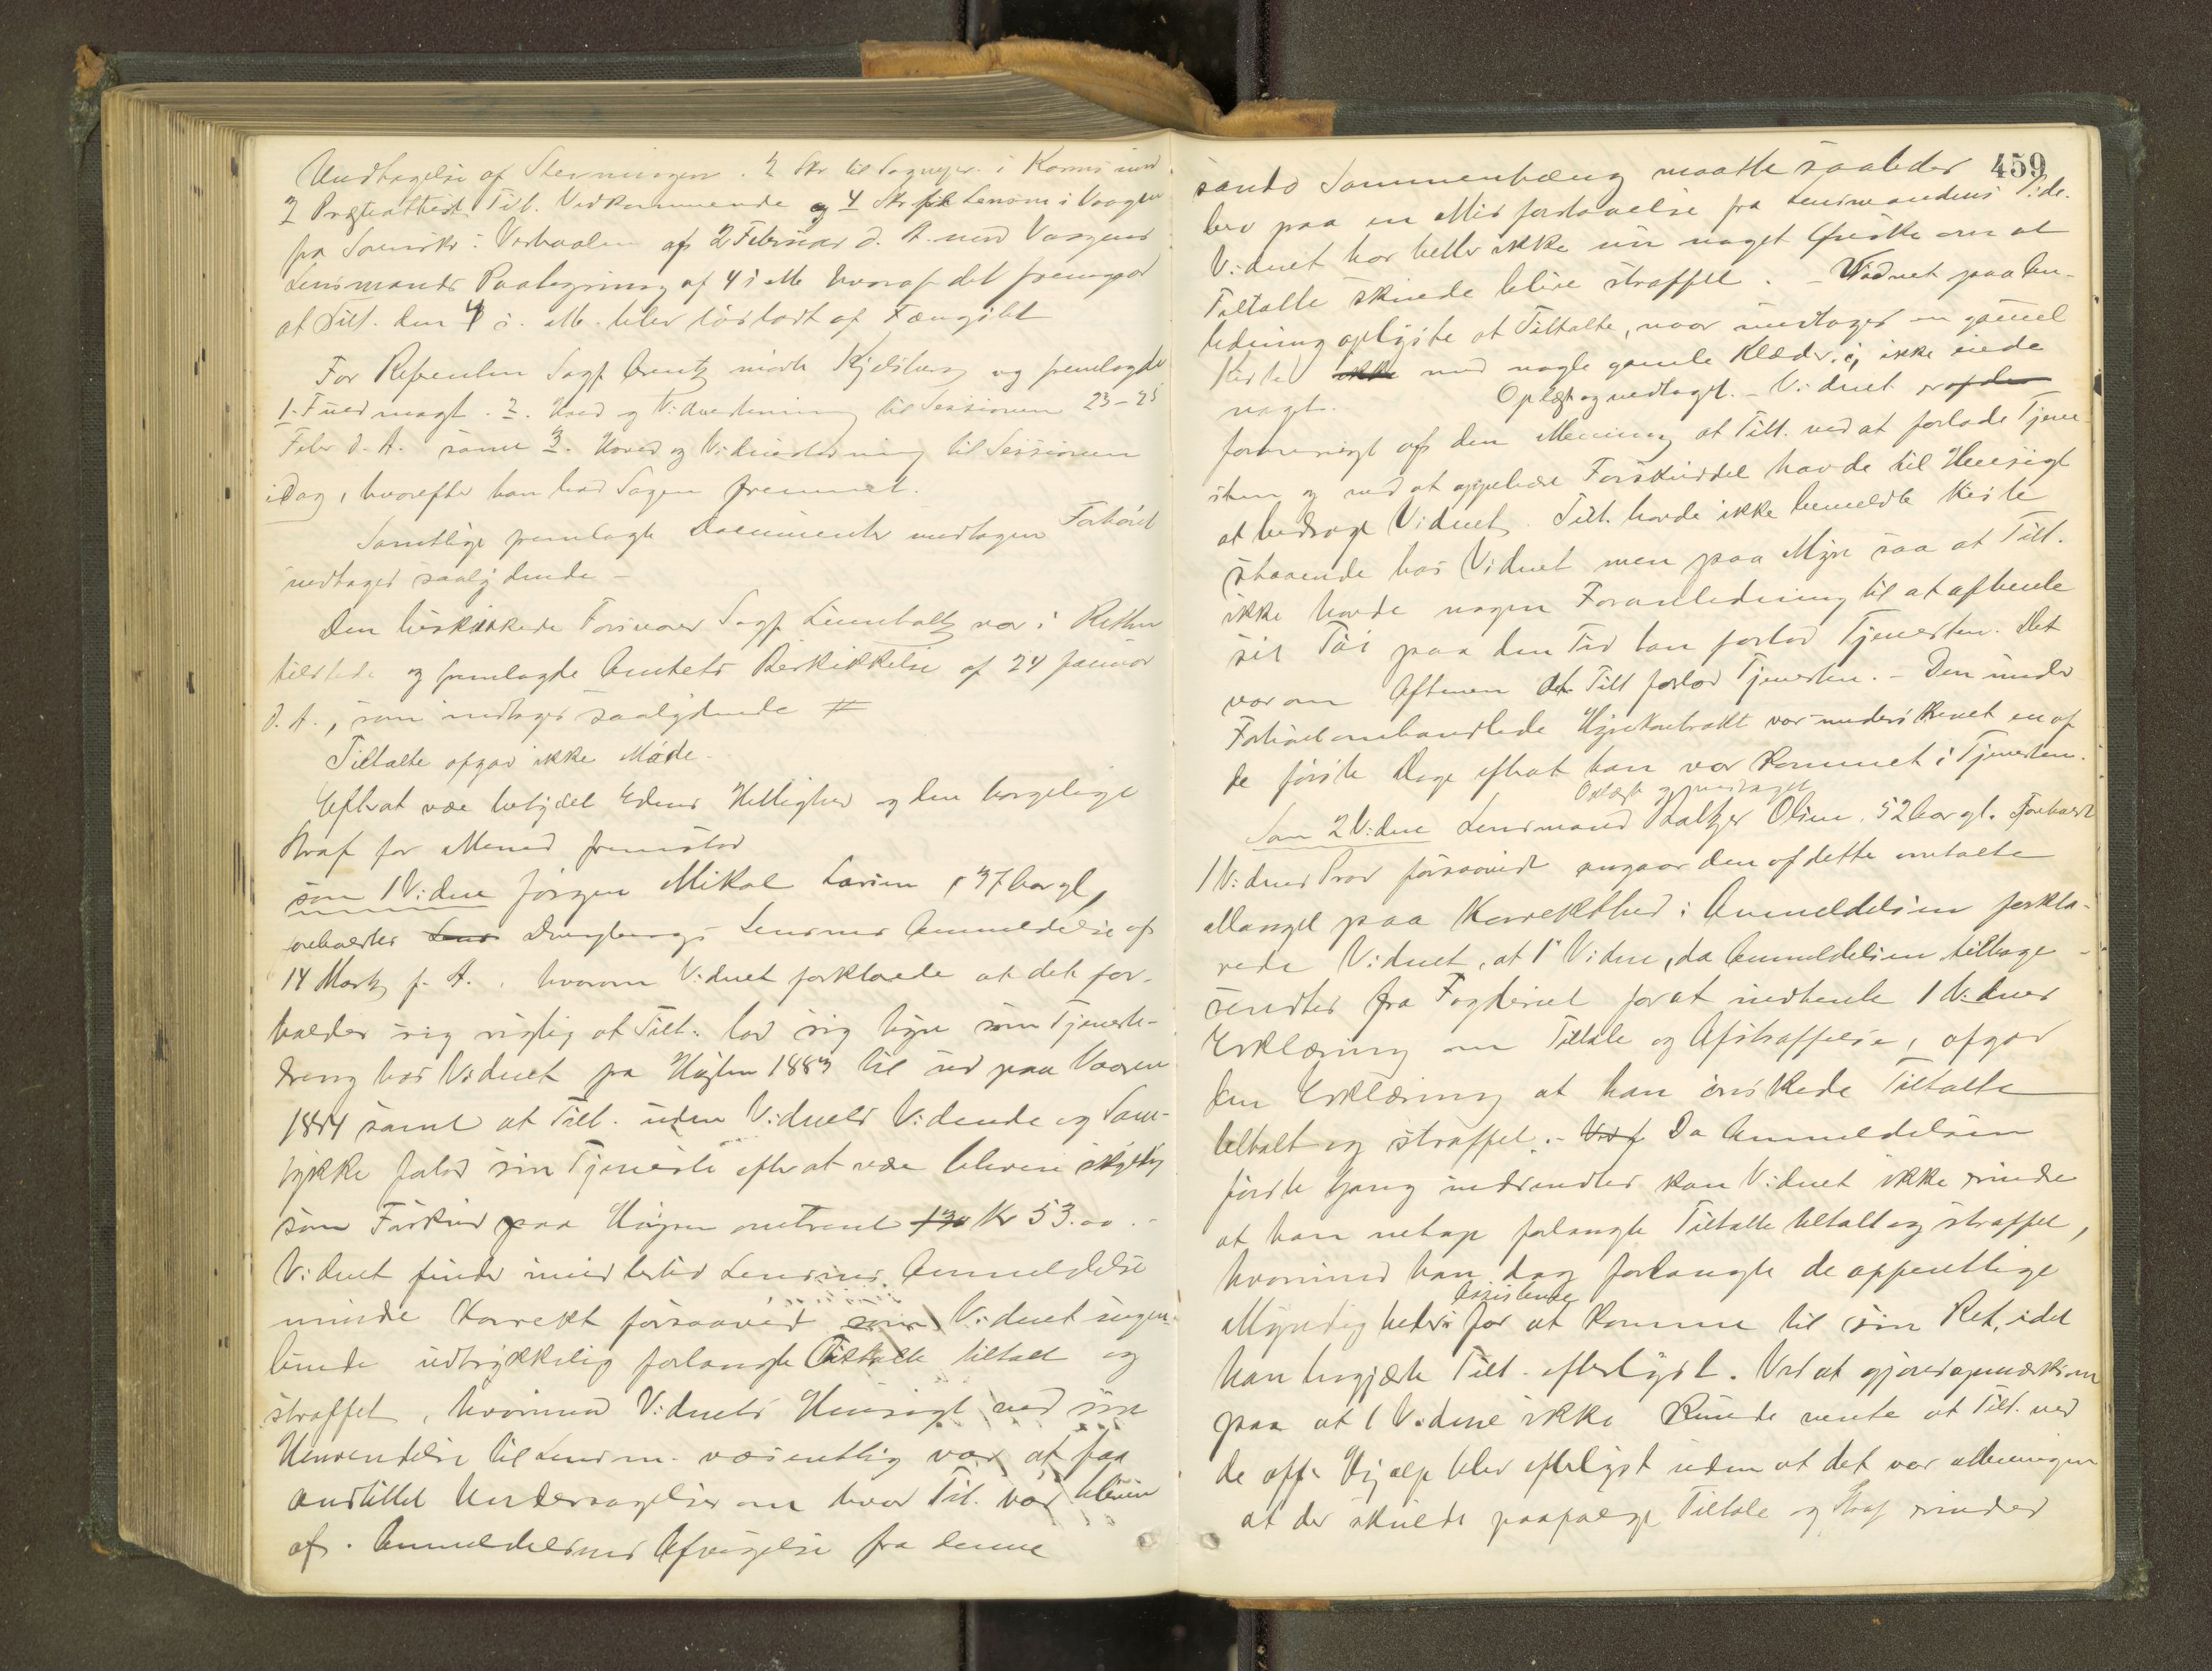 Undtagelse af Stevningen. 2 Skr til Sognepr. i
2 Præsteattest Tilt. Vedkommende og 4 Skr fra Lensm i Vaagen
fra Sorenskr: Vesteraalen af 2 Februar d. A. med Vaagens
Lensmands Paategning af 4 i M hvoraf det fremgaar
at Tilt. den 4 d. M. blev løsladt af Fængslet
For Referenten Sagf. Arentz mødte Kjelsberg og fremlagde
1. Fuldmagt. 2. Hoved og Vidnestevning til Sessionen 23-25
Febr d. A. samt 3. Hoved og Vidnestevning til Sessionen
idag, hvorefter han bad Sagen fremmet.
Samtlige fremlagte Documenter modtagen Forhøret
indtages saalydende –
Den beskikkede Forsvarer Sagf. var i Retten
tilstede og fremlagde Amtets Beskikkelse af 24 Januar
d. A., som indtages saalydende #
Tiltalte afgav ikke Møde.
Efterat være betydet Edens Hellighed og den borgelige
Straf for Mened fremstod
som 1 Vidne Jørgen Mikal Larsen, 37 Aar gl,
foreholdtes Lensmds Anmeldelse af
14 Marts f. A., hvorom Vidnet forklarede at det for-
holder sig rigtig at Tilt. lod sig hyre som Tjeneste-
dreng hos Vidnet fra Høsten 1883 til ud paa Vaaren
1884 samt at Tilt. uden Vidnets Vidende og Sam-
tykke forlod sin Tjeneste efter at være bleven skyldig
som Forskud paa Hyren omtrent Kr 53.00.-
Vidnet finder imidlertid Lensmds Anmeldelse
mindre korrekt forsaavidt som Vidnet ingen-
lunde udtrykkelig forlangte Tiltalte tiltalt og
straffet, hvorimod Vidnets Hensigt ved sin
Henvendelse til Lensm. væsentlig var at faa
anstillet Undersøgelser om hvor Tilt. var bleven
af. Anmeldelsens Afvigelse fra denne
459
sande Sammenhæng maatte saaledes
bero paa en Misforstaaelse fra Lensmandens Side.
Vidnet har heller ikke nu noget Ønske om at
Tiltalte skulde blive straffet. – Vidnet paa An-
ledning oplyste at Tiltalte, naar undtages en gammel
Kiste med nogle gamle Klæder i, ikke eiede
noget. Oplæst og vedtaget. – Vidnet
forøvrigt af den Mening at Tilt. ved at forlade Tjene-
sten og ved at oppebære Forskuddet havde til Hensigt
at bedrage Vidnet. Tilt. havde ikke bemeldte Kiste
staaende hos Vidnet men paa Myre saa at Tilt.
ikke havde nogen Foranledning til at afhente
sit Tøi paa den Tid han forlod Tjenesten. Det
var om Aftenen at Tilt forlod Tjenesten. – Den under
Forhøret omhandlede Hyrekontrakt var underskrevet en af
de første Dage efterat han var kommet i Tjenesten.
Oplæst og vedtaget
Som 2 Vidne Lensmand Baltzer Olsen, 52 Aar gl. Foreholdt
1 Vidnes Prov forsaavidt angaar den af dette omtalte
Mangel paa Korrekthed i Anmeldelsen forkla-
rede Vidnet, at 1' Vidne, da Anmeldelsen tilbage-
sendtes fra Fogderiet forat indhente 1 Vidnes
Erklæring om Tiltale og Afstraffelse, afgav
den Erklæring at han ønskede Tiltalte
tiltalt og straffet. – Da Anmeldelsen
første Gang indsendtes kan Vidnet ikke mindes
at han netop forlangte Tiltalte tiltalt og straffet,
hvorimod han dog forlangte de offentlige
Myndigheders Assistence for at komme til sin Ret, idet
han begjærte Tilt. efterlyst. Ved at gjøres opmærksom
paa at 1 Vidne ikke kunde vente at Tilt. ved
de off. Hjælp blev efterlyst uden at det var Meningen
at der skulde paafølge Tiltale og Straf